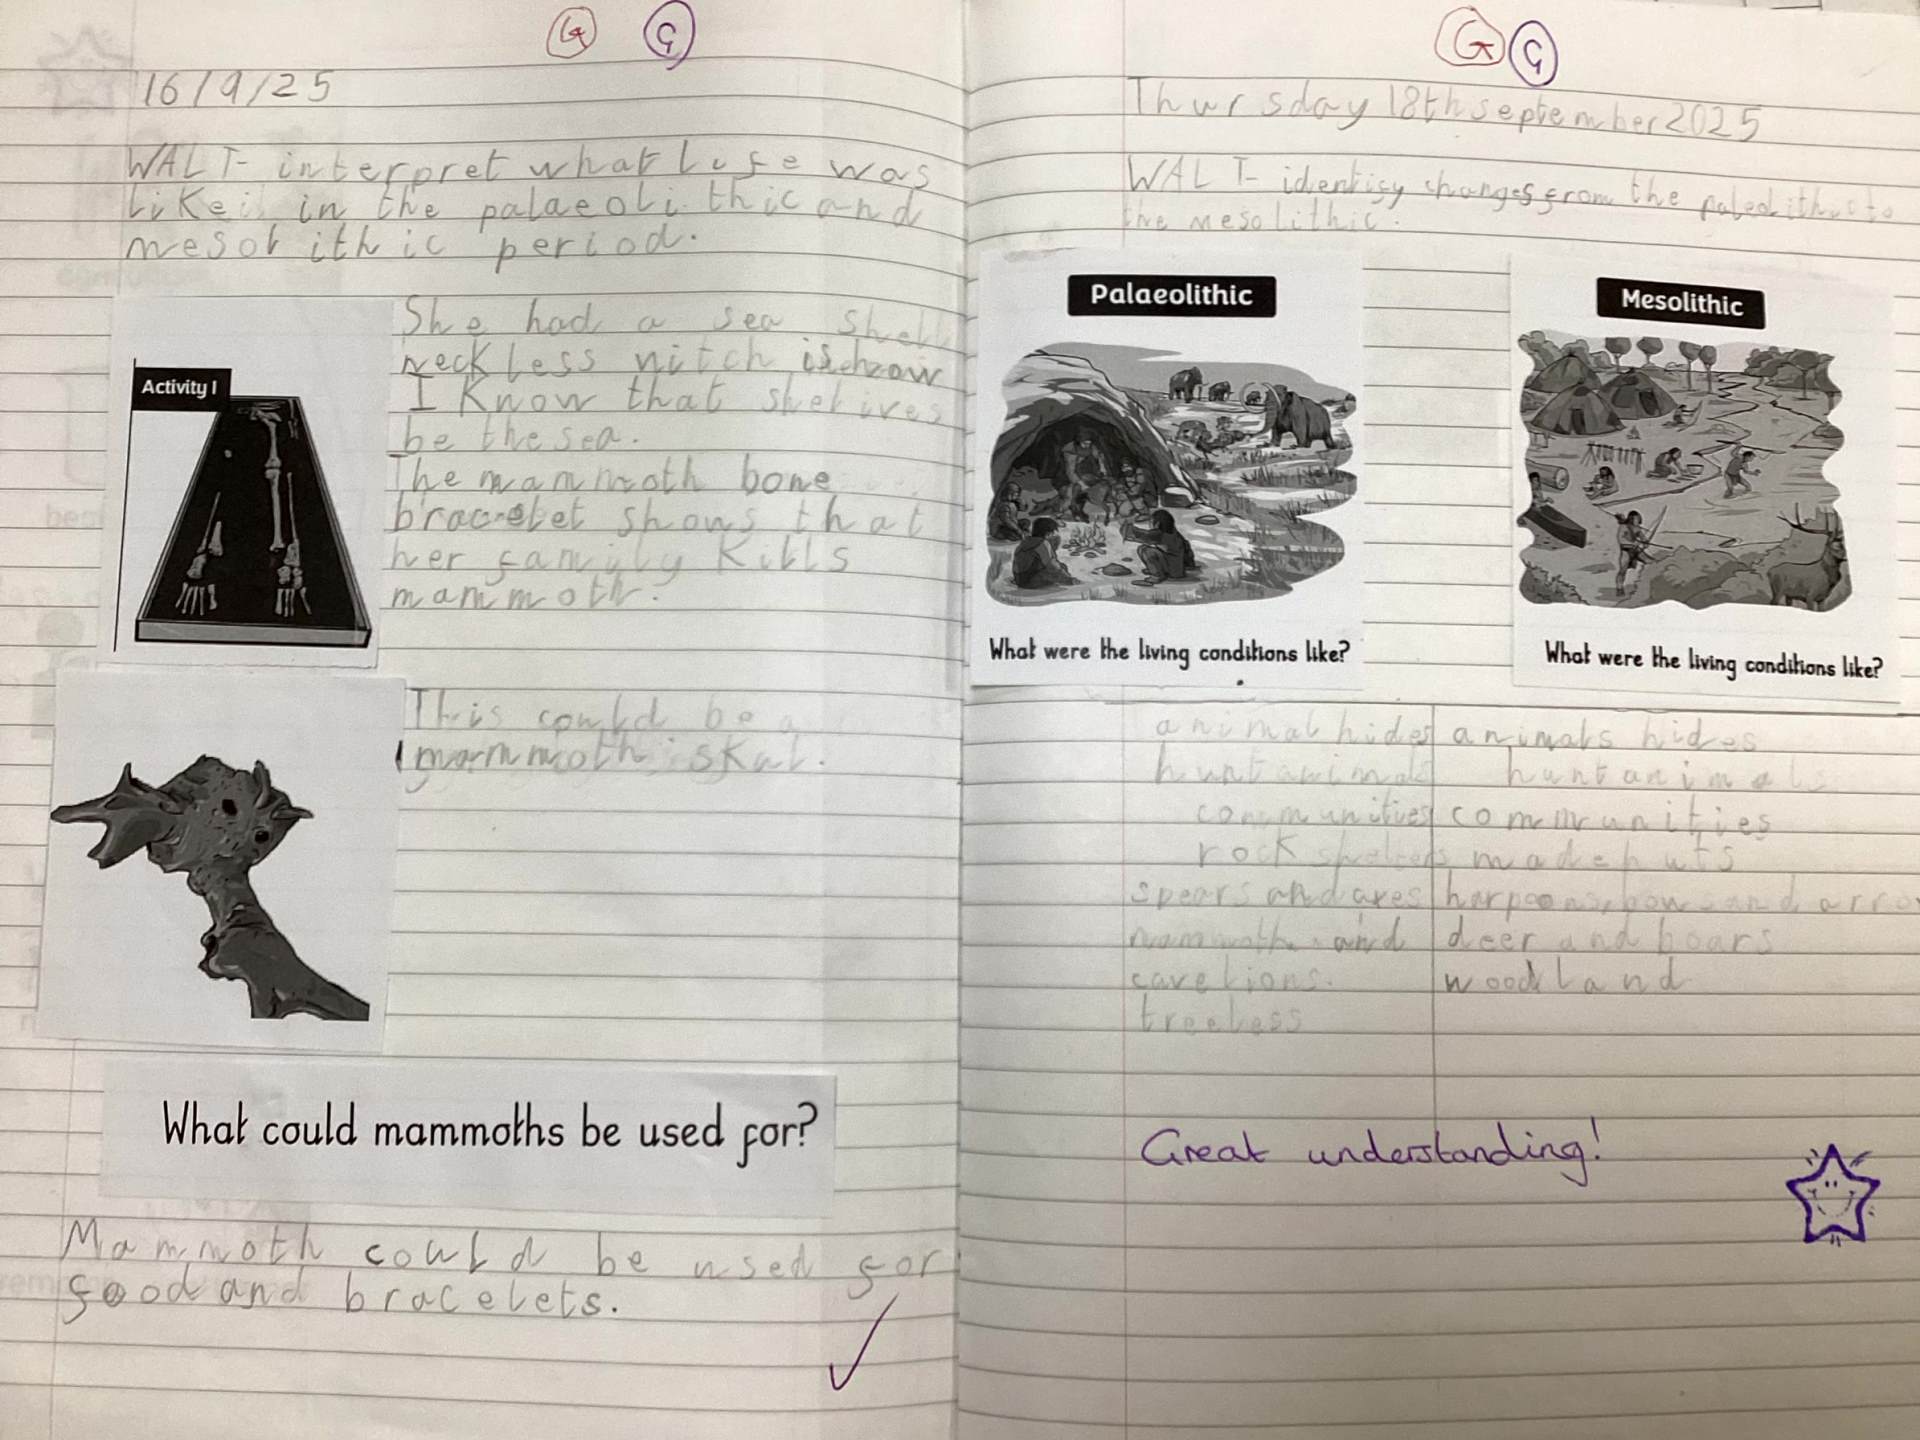 G G
16/9/25
WALT- interpret what life was
like in the palaeolithic and
mesolithic period.
Activity 1
She had a sea shell
neckless witch is how
I know that she lives
be the sea.
The mammoth bone
bracelet shows that
her family kills
mammoth.
This could be a
mammoth skul.
What could mammoths be used for?
Mammoth could be used for
food and bracelets.
G G
Thursday 18th september 2025
WALT- identify changes from the to
the mesolithic.
Palaeolithic
Mesolithic
What were the living conditions like?
What were the living conditions like?
animal hides animals hides
hunt animals hunt animals
communities communities
rock shelters made huts
spears and axes harpoons, bows and arro
mammoth and deer and boars
cave lions. woodland
treeless
Great understanding!